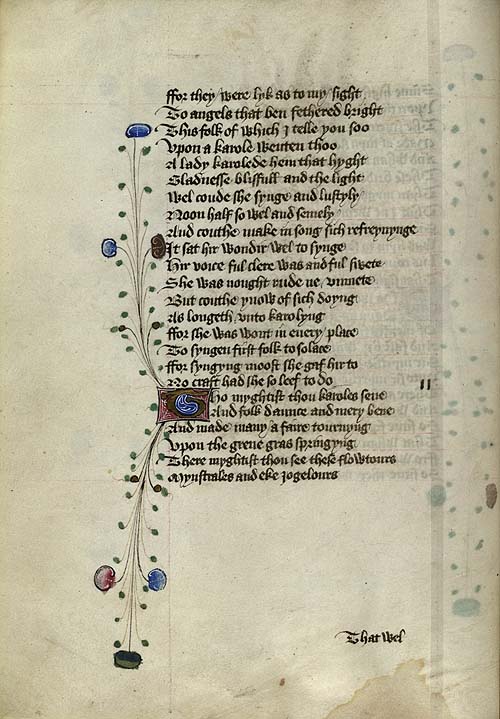 ffor they were lyk as to my sight
To angels that ben fethered bright
This folk of which J telle you soo
Vpon a karole wenten thoo
A lady karolede hem that hyght
Gladnesse blisfull and the light
Wel coude she synge and lustyly
Noon half so wel and semely
And couthe make in song sich refreynynge
It sat hir wondir wel to synge
Hir voice ful clere was and ful swete
She was nought rude ne vnmete
But couthe ynow of sich doyng
As longeth vnto karolyng
ffor she was wont in euery place
To syngen first folk to solace
ffor syngyng moost she gaf hir to
No craft had she so leef to do
Tho myghtist thou karoles sene
And folk daunce and mery bene
And made many a faire tournyng
Vpon the grene gras springyng
There myghtist thou see these flowtours
Mynstrales and eke jogelours
That wel